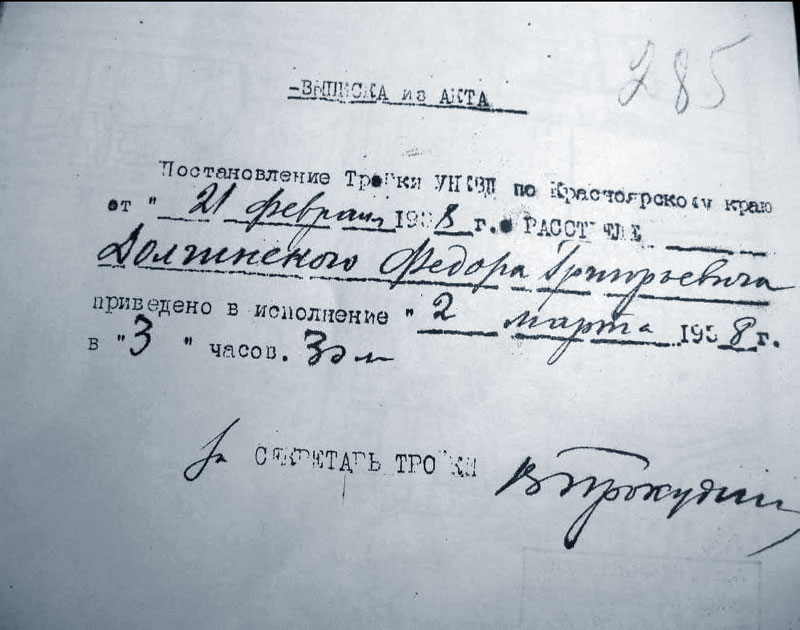 285
-ВЫПИСКА из АКТА
Постановление Тройки УНКВД по Красноярскому краю
от " 21 февраля 1938 г. о РАССТРЕЛЕ
Долгинского Федора Григорьевича
приведено в исполнение " 2 марта 1938 г.
в "3" часов. 30 м
За СЕКРЕТАРЬ ТРОЙКИ ВПрокудин